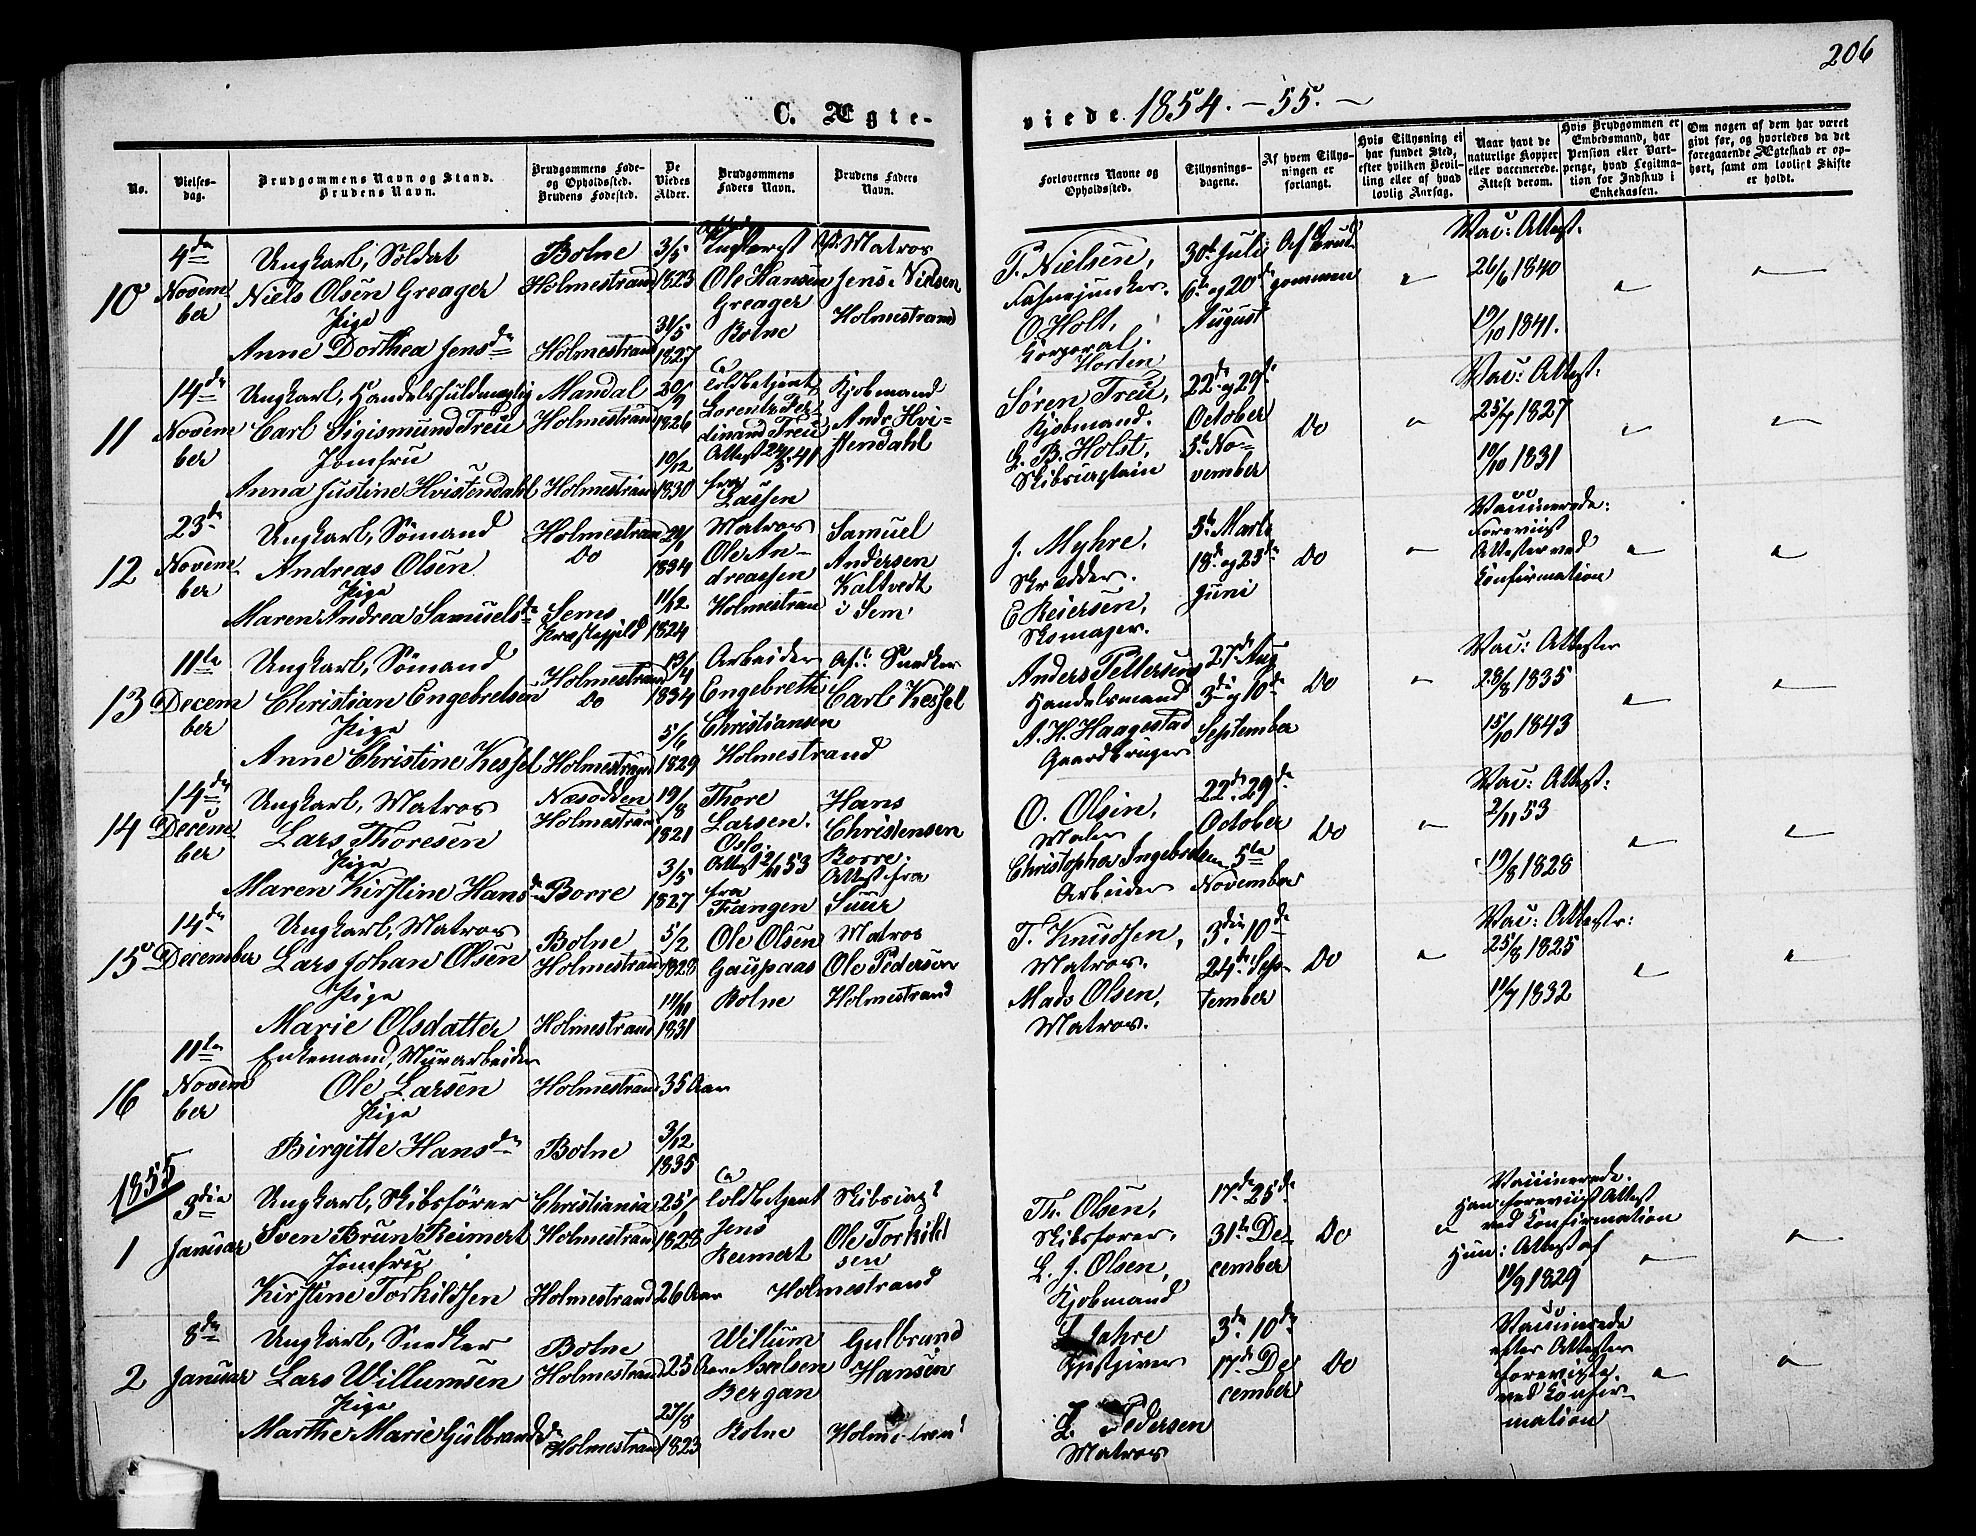 206
C. Ægte-
viede 1854. - 55. -
No.
Vielses-
dag.
Brudgommens Navn og Stand.
Brudens Navn.
Brudgommens Føde-
og Opholdssted.
Brudens Fødested.
De
Viedes
Alder.
Brudgommens
Faders Navn.
Brudens Faders
Navn.
Forlovernes Navne og
Opholdssted.
Tillysnings-
dagene.
Af hvem Tillys-
ningen er
forlangt.
Hvis Tillysning ei
har fundet Sted,
efter hvilken Bevil-
ling eller af hvad
lovlig Aarsag.
Naar havt de
naturlige Kopper
eller vaccinerede.
Attest derom.
Hvis Brudgommen er
Embedsmand, har
Pension eller Vart-
penge, hvad Legitima-
tion for Indskud i
Enkekassen.
Om nogen af dem har været
givt før, og hvorledes da det
foregaaende Ægteskab er op-
hørt, samt om lovligt Skifte
er holdt.
10
4de
Novem
ber
Ungkarl, Soldat
Niels Olsen Greager
Pige
Anne Dorthea Jensdr
Botne
Holmestrand
Holmestrand
3/5
1823
31/5
1827
Ole Hansen
Greager
Botne
Matros
Jens Nielsen
Holmestrand
T. Nielsen,
Fahnejunker.
O Holt,
Korporal.
Horten
30te Juli
6te og 20de
August
Af Brud-
gommen
Vac: Attest.
26/6 1840
19/10 1841.
11
14de
Novem
ber
Ungkarl, Handelsfuldmægtig
Carl Sigismund Treu
Jomfru
Anna Justine Hvistendahl
Mandal
Holmestrand
Holmestrand
20/9
1826
19/12
1830
Toldbetjent
Lorentz Fer-
dinand Treu
fra
Lassen
Kjøbmand
Andr. Hvi-
stendahl
Søren Treu,
Kjøbmand.
L. B. Holst,
Skibscaptain
22de og 29de
October
5te No-
vember
Do
Vac: Attest.
25/7 1827
10/10 1831
12
23de
Novem
ber
Ungkarl, Sømand
Andreas Olsen
Pige
Maren Andrea Samuelsdr
Holmestrand
Do
Sems
Præstegjeld
1834
11/12
1824
Matros
Ole An-
dreassen
Holmestran
Samuel
Andersen
Kaltvedt
i Sem
J. Myhre.
Skrædder.
E Reiersen,
Skomager.
5te Marts
18de og 25de
Juni
Do
Vaccinerede:
Foreviist
Attester ved
Confirmation
13
11te
Decem
ber
Ungkarl, Sømand
Christian Engebretsen
Pige
Anne Christine Kessel
Holmestrand
Do
Holmestrand
13/4
1834
5/6
1829
Arbeider
Engebreth
Christiansen
Holmestrand
Afd: Snedker
Carl Kessel
Anders Pettersen
Handelsmand
A. H. Haagestad
Gaardbruger
27de Aug
3die og 10de
September
Do
Vac: Attester
28/8 1835
15/10 1843
14
14de
Decem
ber
Ungkarl, Matros
Lars Thoresen
Pige
Maren Kirstine Hansdr
Næsodden
Holmestrand
Borre
19/8
1821
3/5
1827
Thore
Larsen.
Oslo.
Attest 2/11 53
fra
Fangen
Hans
Christensen
Borre.
Attest fra
Suur
O. Olsen,
Maler
Christopher Ingebretsen
Arbeider
22de 29de
October
5te
November
Do
Vac: Attest:
2/11 53
19/8 1828
15
14de
December
Ungkarl, Matros
Lars Johan Olsen
Pige
Marie Olsdatter
Botne
Holmestrand
Holmestrand
5/2
1828
14/11
1831
Ole Olsen
Gaupaas
Botne
Matros
Ole Pedersen
Holmestrand
T. Knudsen,
Matros.
Mads Olsen,
Matros.
3die 10de
24de Sep-
tember
Do
Vac: Attester:
25/8 1825
11/7 1832
16
11te
Novem
ber
Enkemand, Murarbeider
Ole Larsen
Pige
Birgitte Hansdr
Holmestrand
Botne
35 Aar
3/12
1835
1855
1
3die
Januar
Ungkarl, Skibsfører
Sven Brun Reimert
Jomfru
Kirstine Torkildsen
Christiania
Holmestrand
Holmestrand
25/1
1828
26 Aar
Toldbetjent
Jens
Reimert
Skibscapt
Ole Torkild
sen
Holmestrand
Th. Olsen,
Skibsfører.
L. J. Olsen,
Kjøbmand
17de 25de
31te De
cember
Do
Vaccinerede.
Han foreviist Attest
ved Confirmation
Hun: Attest af
11/9 1829
2
8de
Januar
Ungkarl, Snedker
Lars Willumsen
Pige
Marthe Marie Gulbrandsdr
Botne
Holmestrand
Holmestrand
25 Aar
27/8
1823
Willum
Axelsen
Bergan
Botne
Gulbrand
Hansen
Jahre
Gjestgiver
L. Pedersen
Matros
3de 10de
17de De
cember
Do
Vaccinerede
efter Attester
foreviste
ved Confir
mation